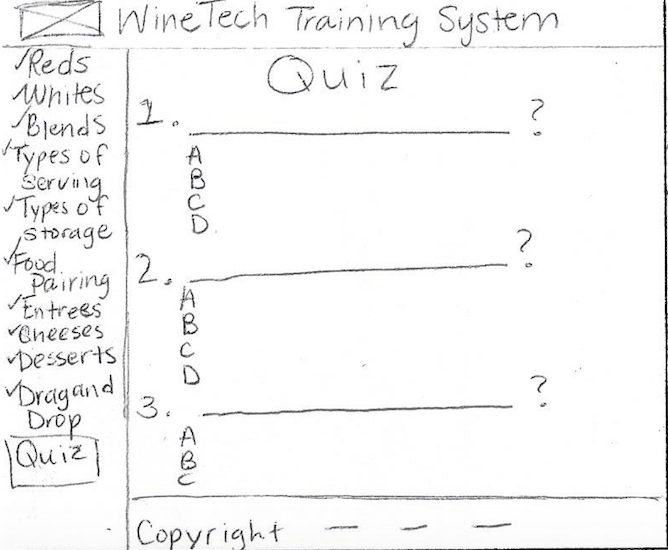 WineTech Training System
✓Reds
✓Whites
✓Blends
✓Types of
Serving
✓Types of
storage
✓Food
Pairing
✓Entrees
✓Cheeses
✓Desserts
✓Drag and
Drop
Quiz
Quiz
1. ?
A
B
C
D
2. ?
A
B
C
D
3. ?
A
B
C
Copyright